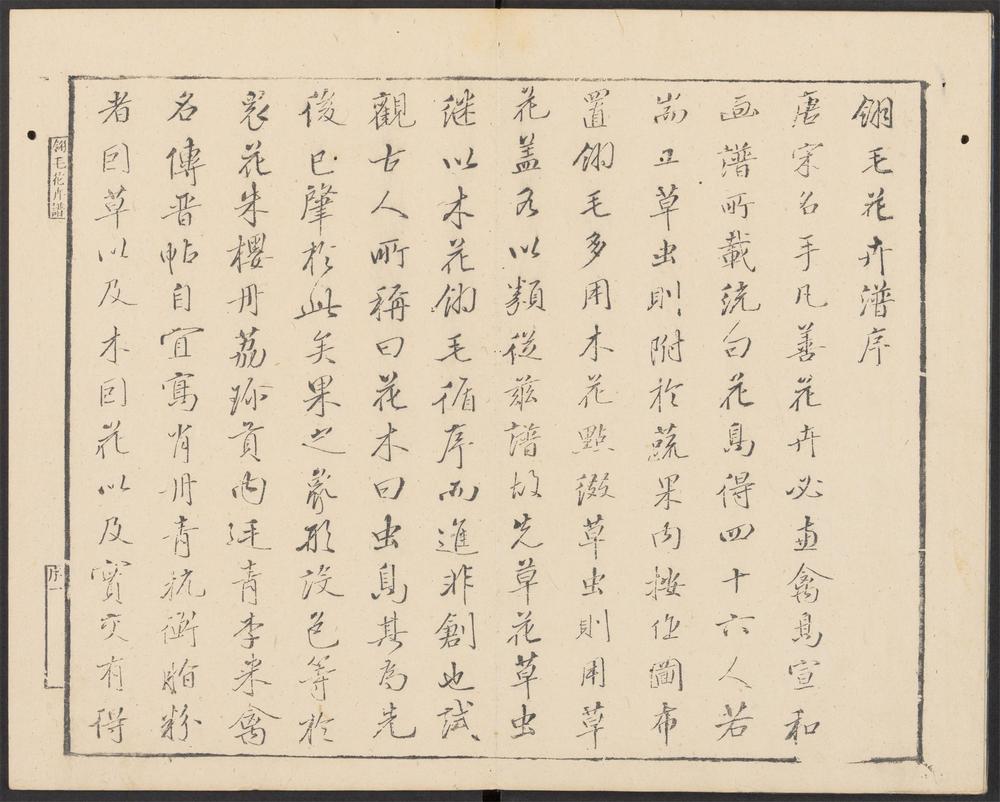 翎毛花卉譜序
唐宋名手凡善花卉必画禽鳥宣和
画譜所載統勾花鳥得四十六人若
耑工草虫則附於蔬果内按作圖布
置翎毛多用木花點綴草虫則用草
花盖各以類從茲譜故先草花草虫
继以木花翎毛循序而進非創也試
觀古人所稱曰花木曰虫鳥其為先
後已肇於此矣果之象形設色等於
衆花朱櫻丹荔珎貢内廷青李来禽
名傳晋帖自宜寓肖丹青抗衡脂粉
者因草以及木因花以及實交有得
翎毛花卉譜
序一